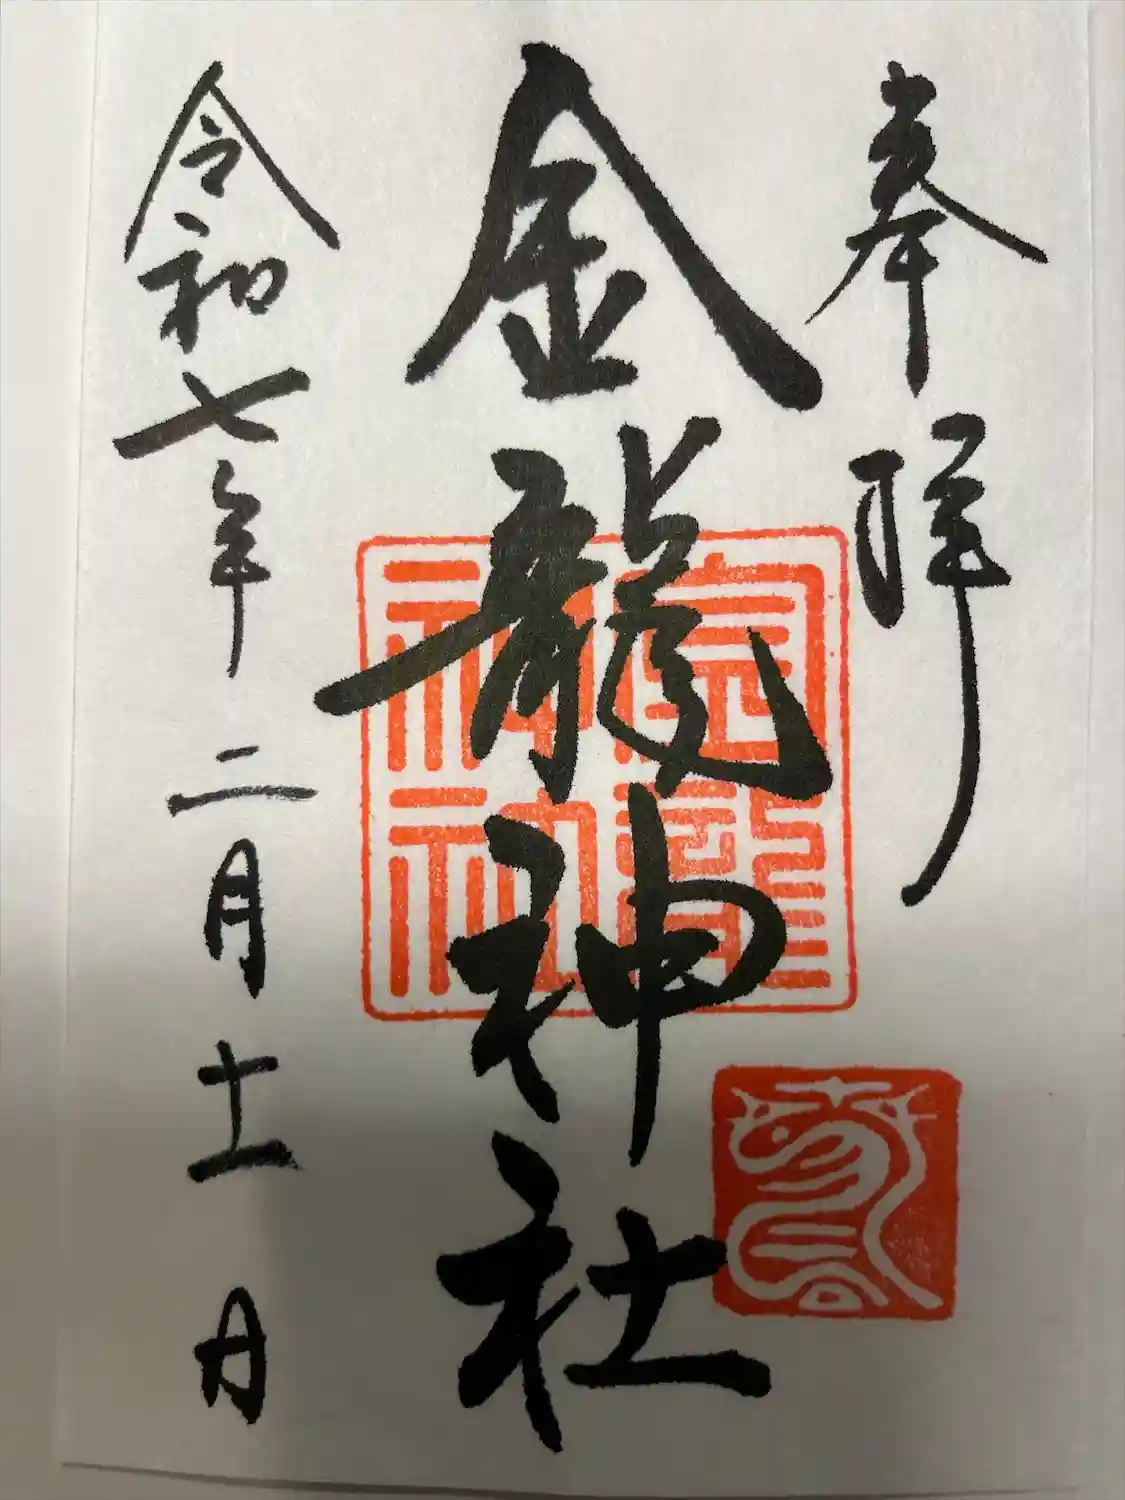 奉拝
金龍神社
金龍
神社
令和七年二月十一日